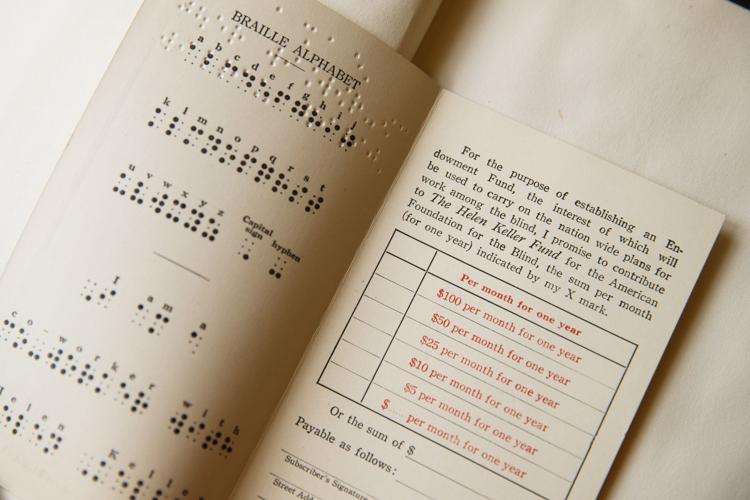 BRAILLE ALPHABET
a b c d e f g h i j
k l m n o p q r s t
u v w x y z
Capital sign hyphen
I am a
co-worker with
Helen Kelle
For the purpose of establishing an En-
dowment Fund, the interest of which will
be used to carry on the nation wide plans for
work among the blind, I promise to contribute
to The Helen Keller Fund for the American
Foundation for the Blind, the sum per month
(for one year) indicated by my X mark.
Per month for one year
$100 per month for one year
$50 per month for one year
$25 per month for one year
$10 per month for one year
$5 per month for one year
$ .... per month for one year
Or the sum of $
Payable as follows:
Subscriber's Signature
Street Addr